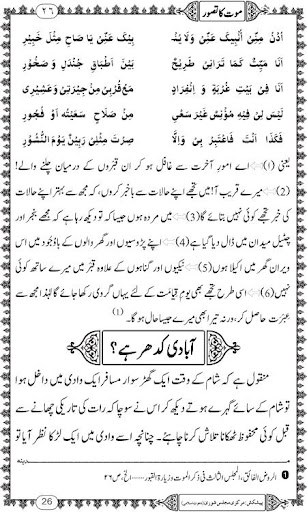 موت کا تصور ٢٦
اُدْنُ مِنِّىْ اُنْبِيكَ عَنِّىْ وَلَا يُنْـ بِيْكَ عَنِّىْ يَا صَاحِ مِثْلُ خَبِيْرِ
اَنَا مَيِّتٌ كَمَا تَرَانِىْ طَرِيْحٌ بَيْنَ اَطْبَاقِ جَنْدَلٍ وَ صُخُوْرِ
اَنَا فِىْ بَيْتِ غُرْبَةٍ وَ اِنْفِرَادٍ مَعَ قُرْبِىْ مِنْ جِيْرَتِىْ وَعَشِيْرِىْ
لَيْسَ لِىْ فِيْهِ مُؤْنِسٌ غَيْرَ سَعْىٍ مِنْ صَلَاحٍ سَعَيْتُهُ اَوْ فُجُوْرِ
فَكَذَا اَنْتَ فَاعْتَبِرْ بِىْ وَاِلَّا صِرْتَ مِثْلِىْ رَهِيْنَ يَوْمِ النُّشُوْرِ
یعنی (1) اے امورِ آخرت سے غافل ہو کر ان قبروں کے درمیان چلنے والے!
(2) میرے قریب آ! میں تجھے اپنے حالات سے باخبر کروں، کہ مجھ سے بہتر اپنے حالات
کی خبر تجھے کوئی نہیں بتائے گا (3) میں مردہ ہوں جیسا کہ تو دیکھ رہا ہے کہ مجھے بنجر اور
چٹیل میدان میں ڈال دیا گیا ہے (4) اپنے پڑوسیوں اور گھر والوں کے باوُجود میں اس
ویران گھر میں اکیلا ہوں (5) نیکیوں اور گناہوں کے علاوہ قبر میں میرے ساتھ کوئی
نہیں (6) اسی طرح تجھے بھی یومِ قیامت کے لئے یہاں گروی رکھا جائے گا لہٰذا مجھ سے
عبرت حاصل کر، ورنہ تیرا بھی میرے جیسا حال ہو گا۔ (1)
آبادی کدھر ہے؟
منقول ہے کہ شام کے وقت ایک گھڑ سوار مسافر ایک وادی میں داخل ہوا
تو شام کے سائے گہرے ہوتے دیکھ کر اس نے سوچا کہ رات کی تاریکی چھانے سے
قبل کوئی محفوظ ٹھکانا تلاش کرنا چاہئے۔ چنانچہ اسے وادی میں ایک لڑکا نظر آیا تو
مدینہ
1 الروض الفائق، المجلس الثالث فی ذکر الموت و زیارة القبور......الخ، ص٢٦
پیشکش: مرکزی مجلس شوریٰ (دعوتِ اسلامی) 26